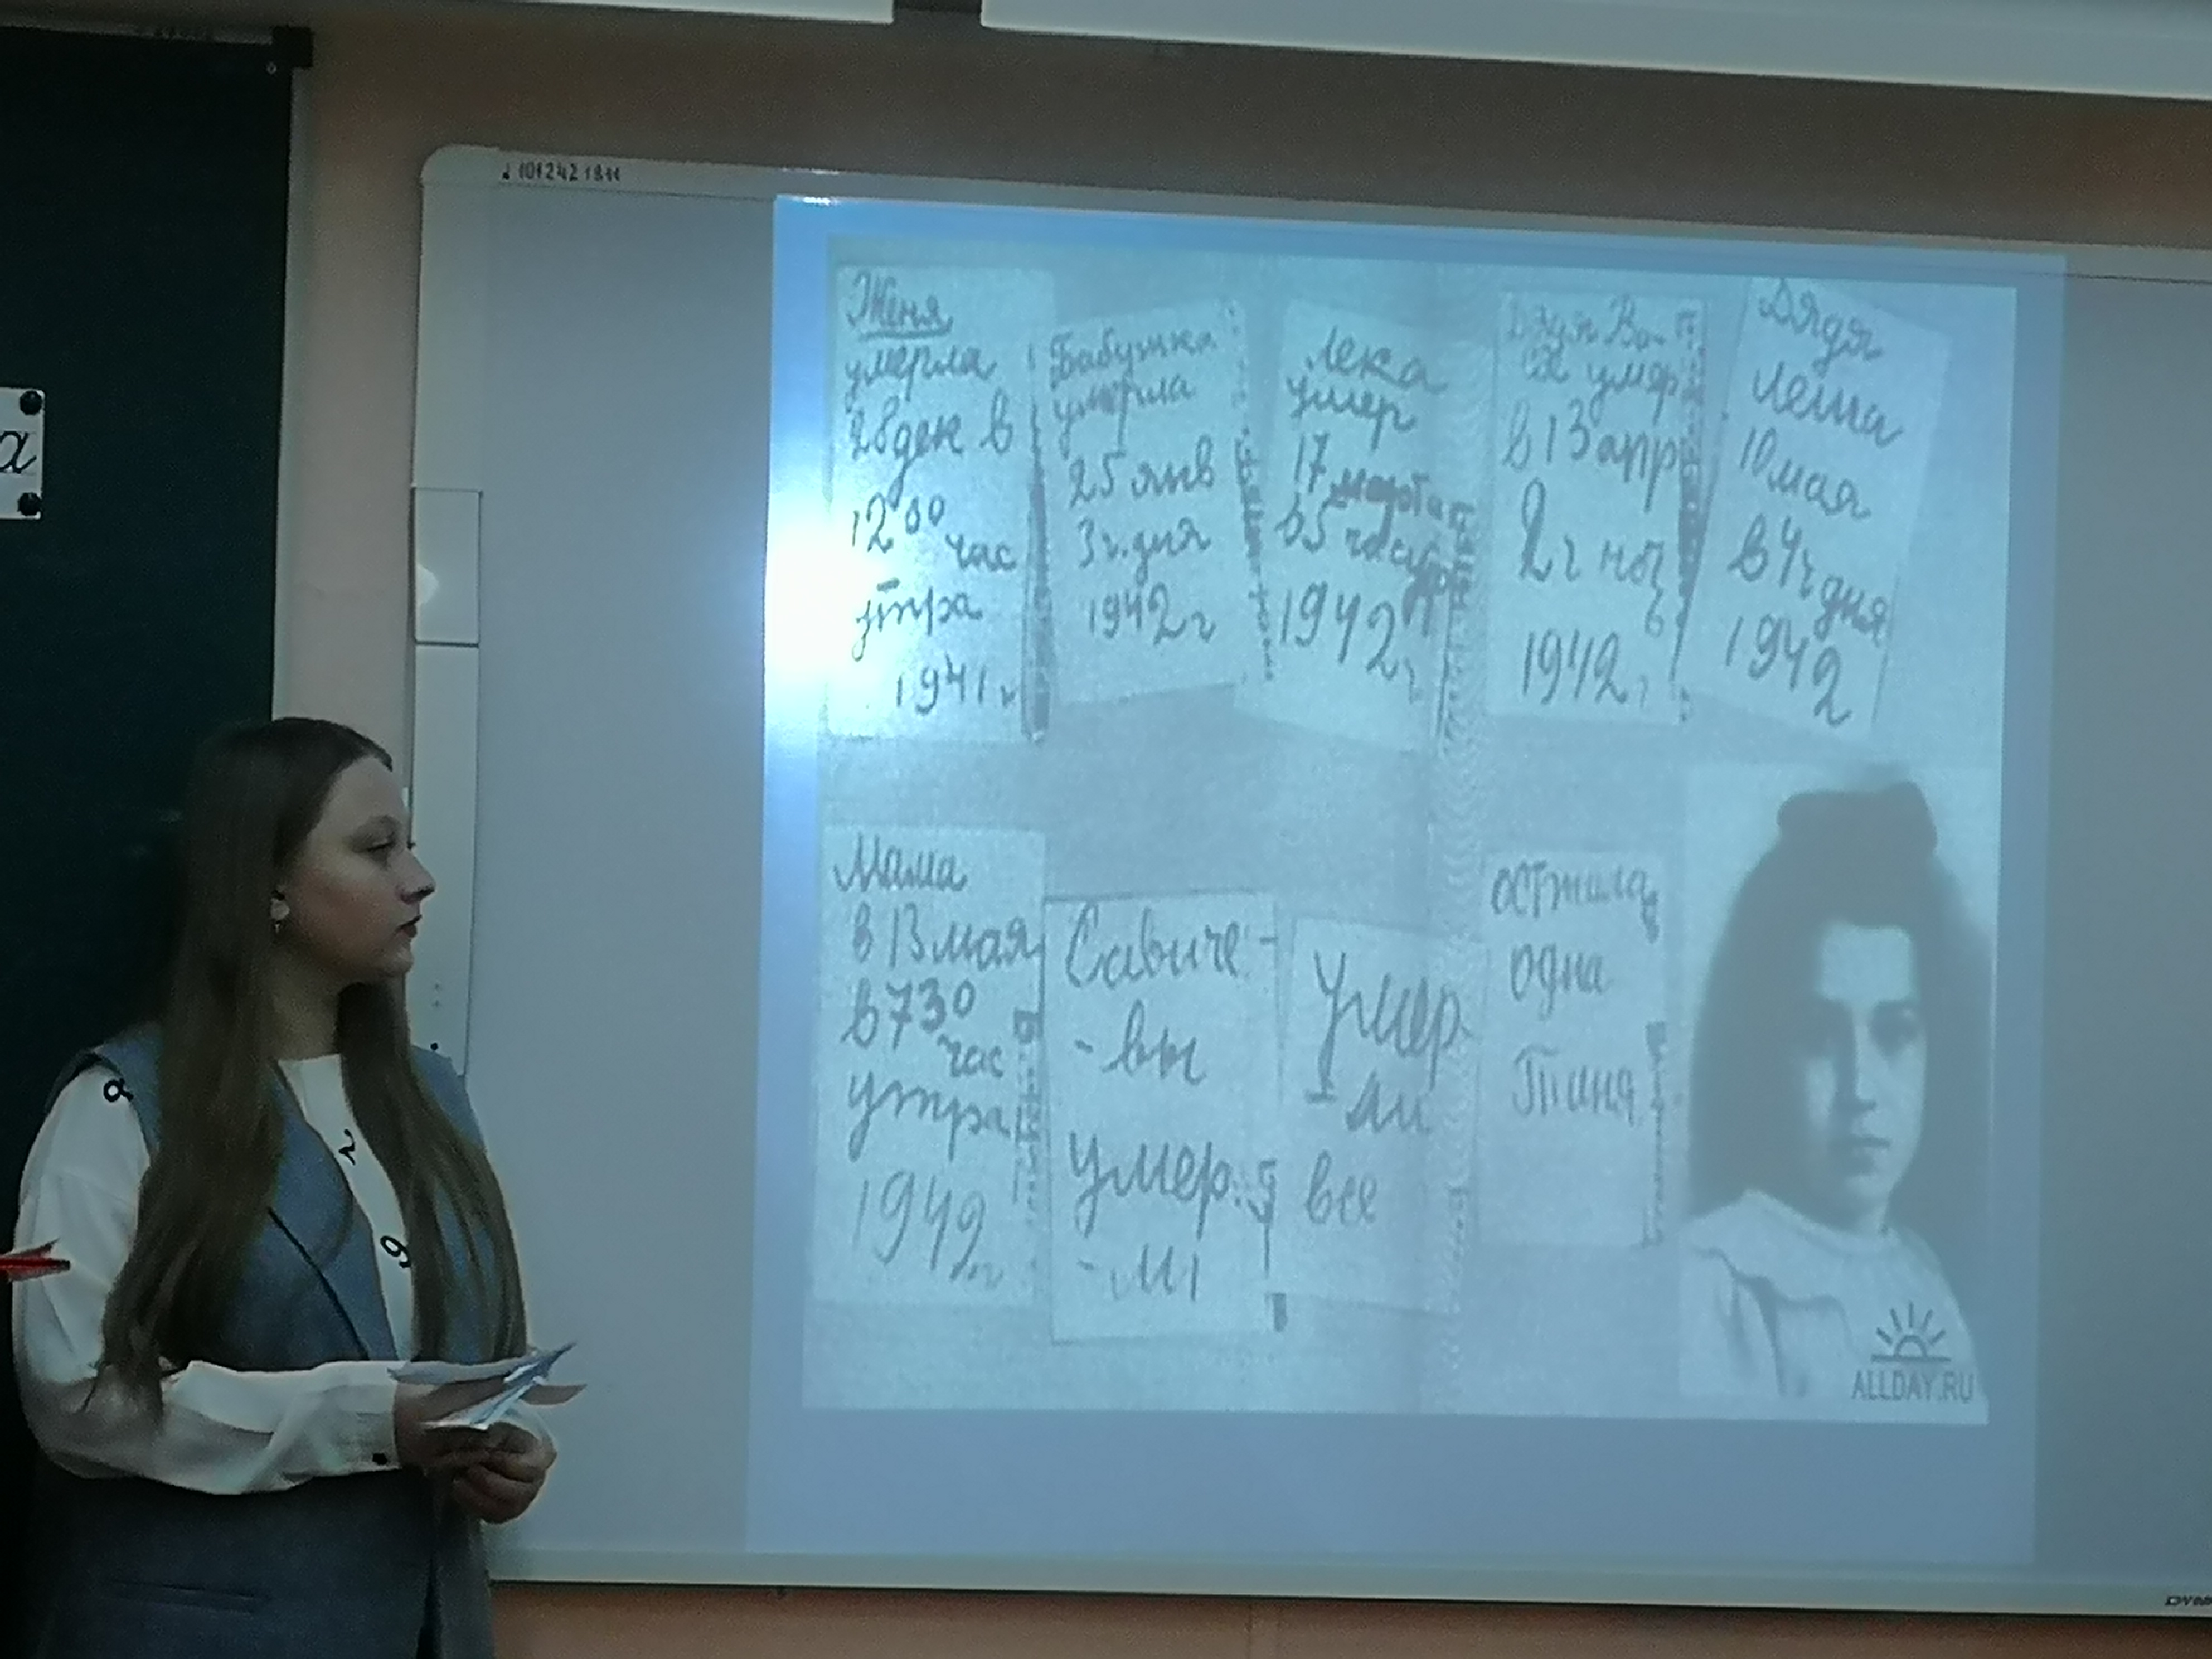 Женя
умерла
28 дек в
12 00 час
утра
1941 г
Бабушка
умерла
25 янв
3 ч. дня
1942 г
Лека
умер
17 марта
в 5 час
1942 г
Дядя Ва-
ся умер
в 13 апр
2 ч ноч
ь
1942 г
Дядя
Леша
10 мая
в 4 ч дня
1942
Мама
в 13 мая
в 7 30
час
утра
1942 г
Савиче-
-вы
умер-
-ли
Умер
-ли
все
осталась
одна
Таня
ALLDAY.RU
а